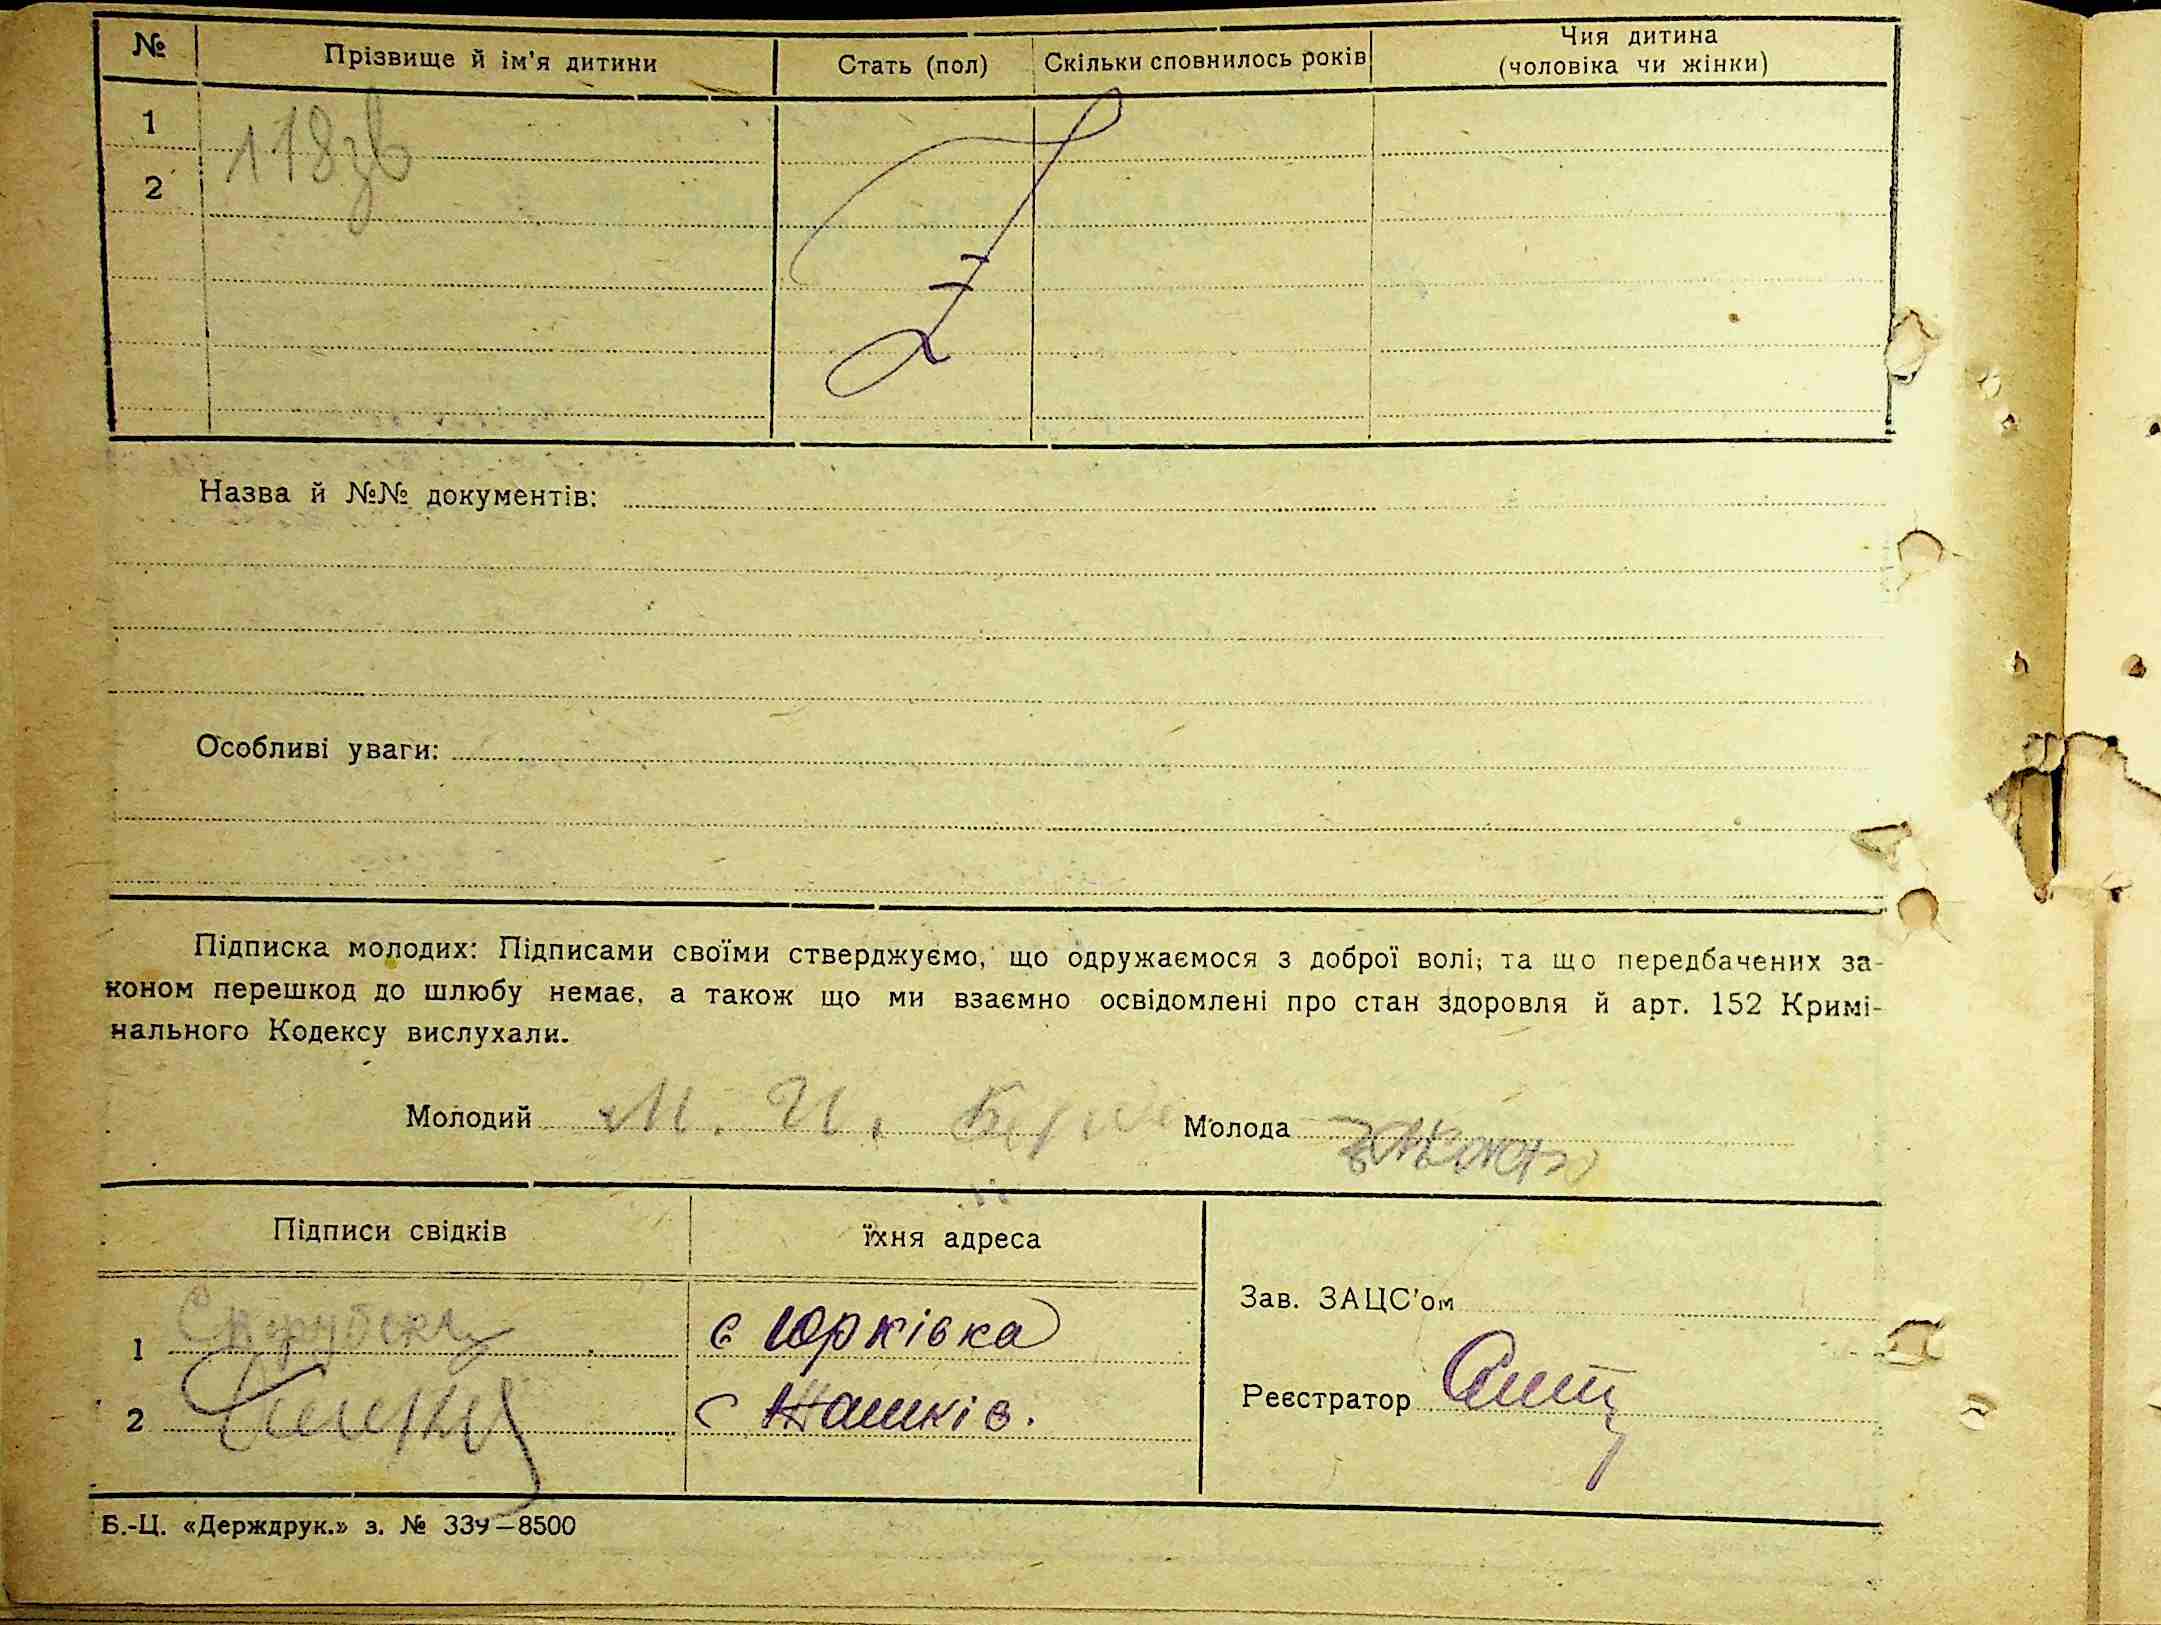 № Прізвище й ім'я дитини Стать (пол) Скільки сповнилось років Чия дитина (чоловіка чи жінки)
1
118зв
2
Назва й №№ документів:
Особливі уваги:
Підписка молодих: Підписами своїми стверджуємо, що одружаємося з доброї волі; та що передбачених за-
коном перешкод до шлюбу немає, а також що ми взаємно освідомлені про стан здоровля й арт. 152 Кримі-
нального Кодексу вислухали.
Молодий М. И. Молода
Підписи свідків їхня адреса
Зав. ЗАЦС'ом
1 с Юрківка
Реєстратор
2 с Жашків.
Б.-Ц. «Держдрук.» з. № 339—8500